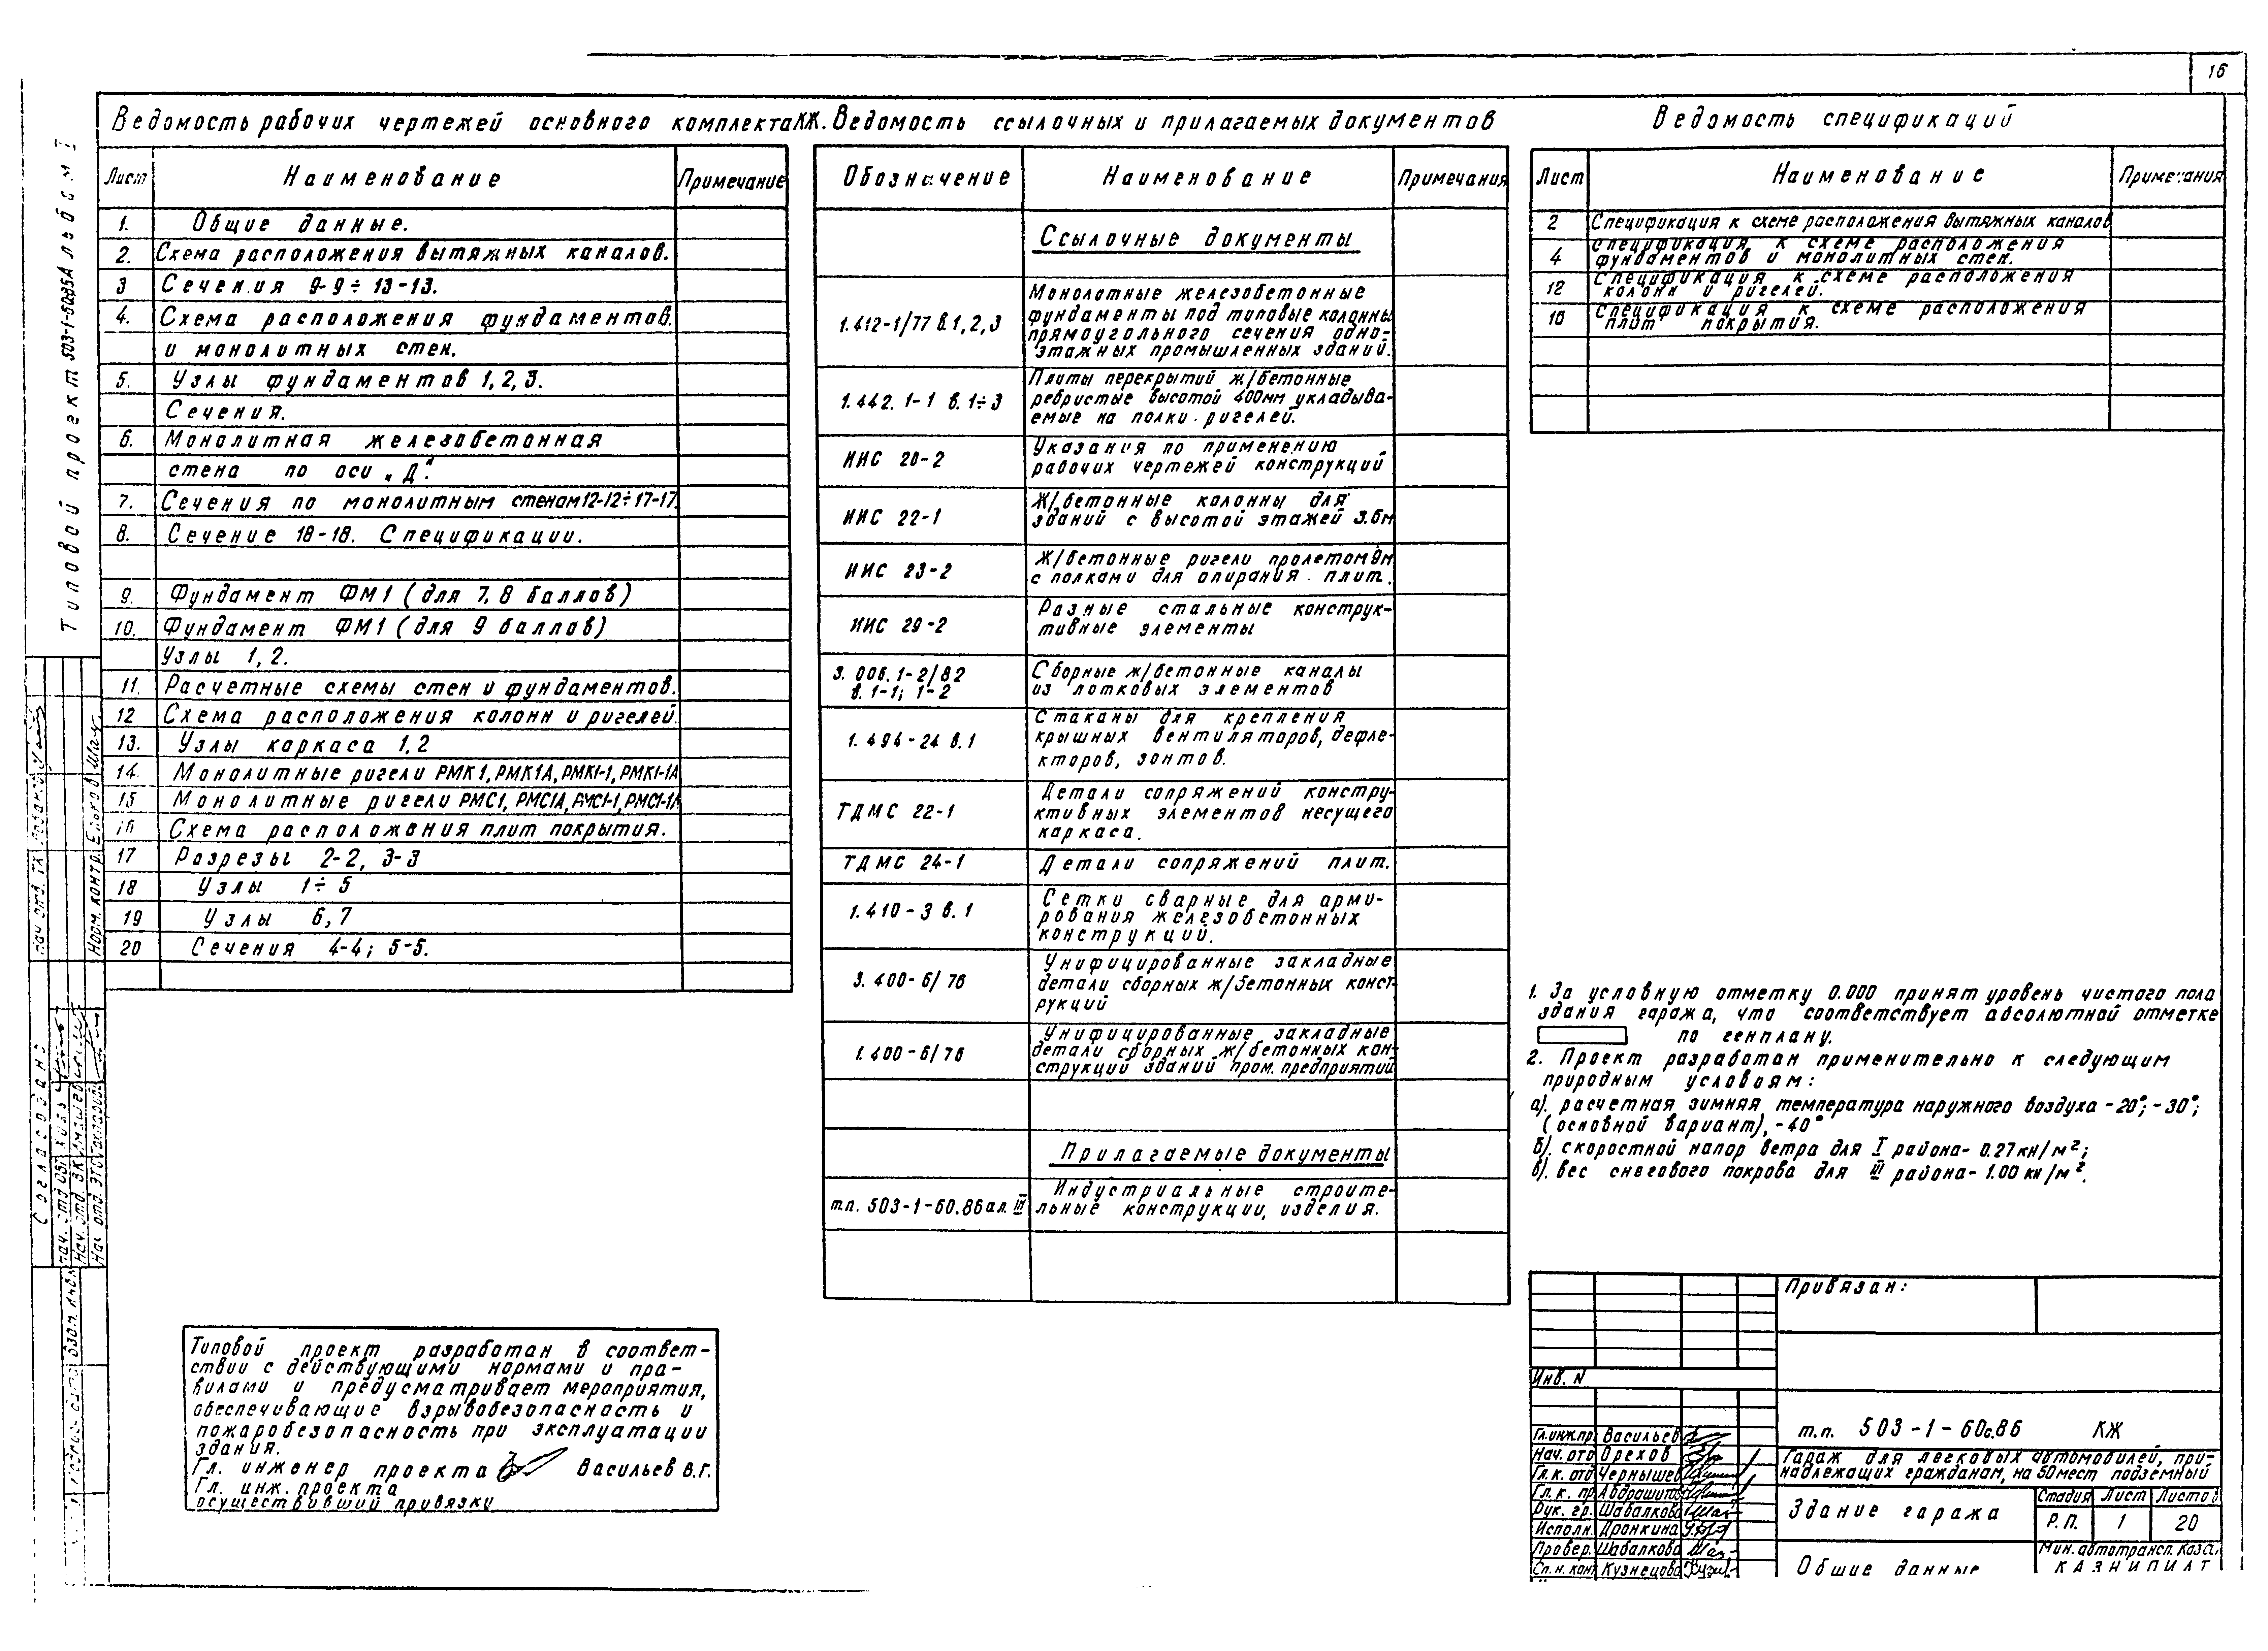 16
Типовой проект 503-1-60.85 Альбом I
Ведомость рабочих чертежей основного комплекта КЖ.
Лист Наименование Примечание
1. Общие данные.
2. Схема расположения вытяжных каналов.
3 Сечения 9-9÷13-13.
4. Схема расположения фундаментов.
и монолитных стен.
5. Узлы фундаментов 1,2,3.
Сечения.
6. Монолитная железобетонная
стена по оси „Д".
7. Сечения по монолитным стенам 12-12÷17-17.
8. Сечение 18-18. Спецификации.
9. Фундамент ФМ1 (для 7,8 баллов)
10. Фундамент ФМ1 (для 9 баллов)
Узлы 1,2.
11. Расчетные схемы стен и фундаментов.
12 Схема расположения колонн и ригелей.
13. Узлы каркаса 1,2
14. Монолитные ригели РМК1, РМК1А, РМК1-1, РМК1-1А
15 Монолитные ригели РМС1, РМС1А, РМС1-1, РМС1-1А
16 Схема расположения плит покрытия.
17 Разрезы 2-2, 3-3
18 Узлы 1÷5
19 Узлы 6,7
20 Сечения 4-4; 5-5.
Ведомость ссылочных и прилагаемых документов
Обозначение Наименование Примечания
Ссылочные документы
1.412-1/77 в.1,2,3 Монолотные железобетонные
фундаменты под типовые колонны
прямоугольного сечения одно-
этажных промышленных зданий.
1.442.1-1 в.1÷3 Плиты перекрытий ж/бетонные
ребристые высотой 400мм укладыва-
емые на полки ригелей.
ИИС 20-2 Указания по применению
рабочих чертежей конструкций
ИИС 22-1 Ж/бетонные колонны для
зданий с высотой этажей 3.6м
ИИС 23-2 Ж/бетонные ригели пролетом 9м
с полками для опирания плит.
ИИС 29-2 Разные стальные конструк-
тивные элементы
3.006.1-2/82 Сборные ж/бетонные каналы
в.1-1; 1-2 из лотковых элементов
1.494-24 в.1 Стаканы для крепления
крышных вентиляторов, дефле-
кторов, зонтов.
ТДМС 22-1 Детали сопряжений констру-
ктивных элементов несущего
каркаса.
ТДМС 24-1 Детали сопряжений плит.
1.410-3 в.1 Сетки сварные для арми-
рования железобетонных
конструкций.
3.400-6/76 Унифицированные закладные
детали сборных ж/бетонных конст
рукций
1.400-6/76 Унифицированные закладные
детали сборных ж/бетонных кон-
струкций зданий пром. предприятий
Прилагаемые документы
т.п. 503-1-60.86 ал. III Индустриальные строите-
льные конструкции, изделия.
Ведомость спецификаций
Лист Наименование Примечания
2 Спецификация к схеме расположения вытяжных каналов
4 Спецификация к схеме расположения
фундаментов и монолитных стен.
12 Спецификация к схеме расположения
колонн и ригелей.
16 Спецификация к схеме расположения
плит покрытия.
1. За условную отметку 0.000 принят уровень чистого пола
здания гаража, что соответствует абсолютной отметке
по генплану.
2. Проект разработан применительно к следующим
природным условиям:
а). расчетная зимняя температура наружного воздуха -20°; -30°;
(основной вариант), -40°
б). скоростной напор ветра для I района- 0.27кн/м²;
в). вес снегового покрова для III района- 1.00 кн/м².
Типовой проект разработан в соответ-
ствии с действующими нормами и пра-
вилами и предусматривает мероприятия,
обеспечивающие взрывобезопасность и
пожаробезопасность при эксплуатации
здания.
Гл. инженер проекта Васильев В.Г.
Гл. инж. проекта
осуществивший привязку
Привязан:
Инв. N
т.п. 503-1-60с.86 КЖ
Гл.инж.пр. Васильев
Нач. отд Орехов
Гл.к. отд Чернышев
Гл. к. пр Абдрашитов
Рук. гр. Шабалкова
Исполн. Дронкина
Провер. Шабалкова
Сп.н.кон Кузнецова
Гараж для легковых автомобилей, при-
надлежащих гражданам, на 50 мест подземный
Здание гаража
Стадия Лист Листов
Р.П. 1 20
Общие данные
Мин. автотрансп. Каз
КАЗНИПИАТ
Согласовано
Норм. контр.